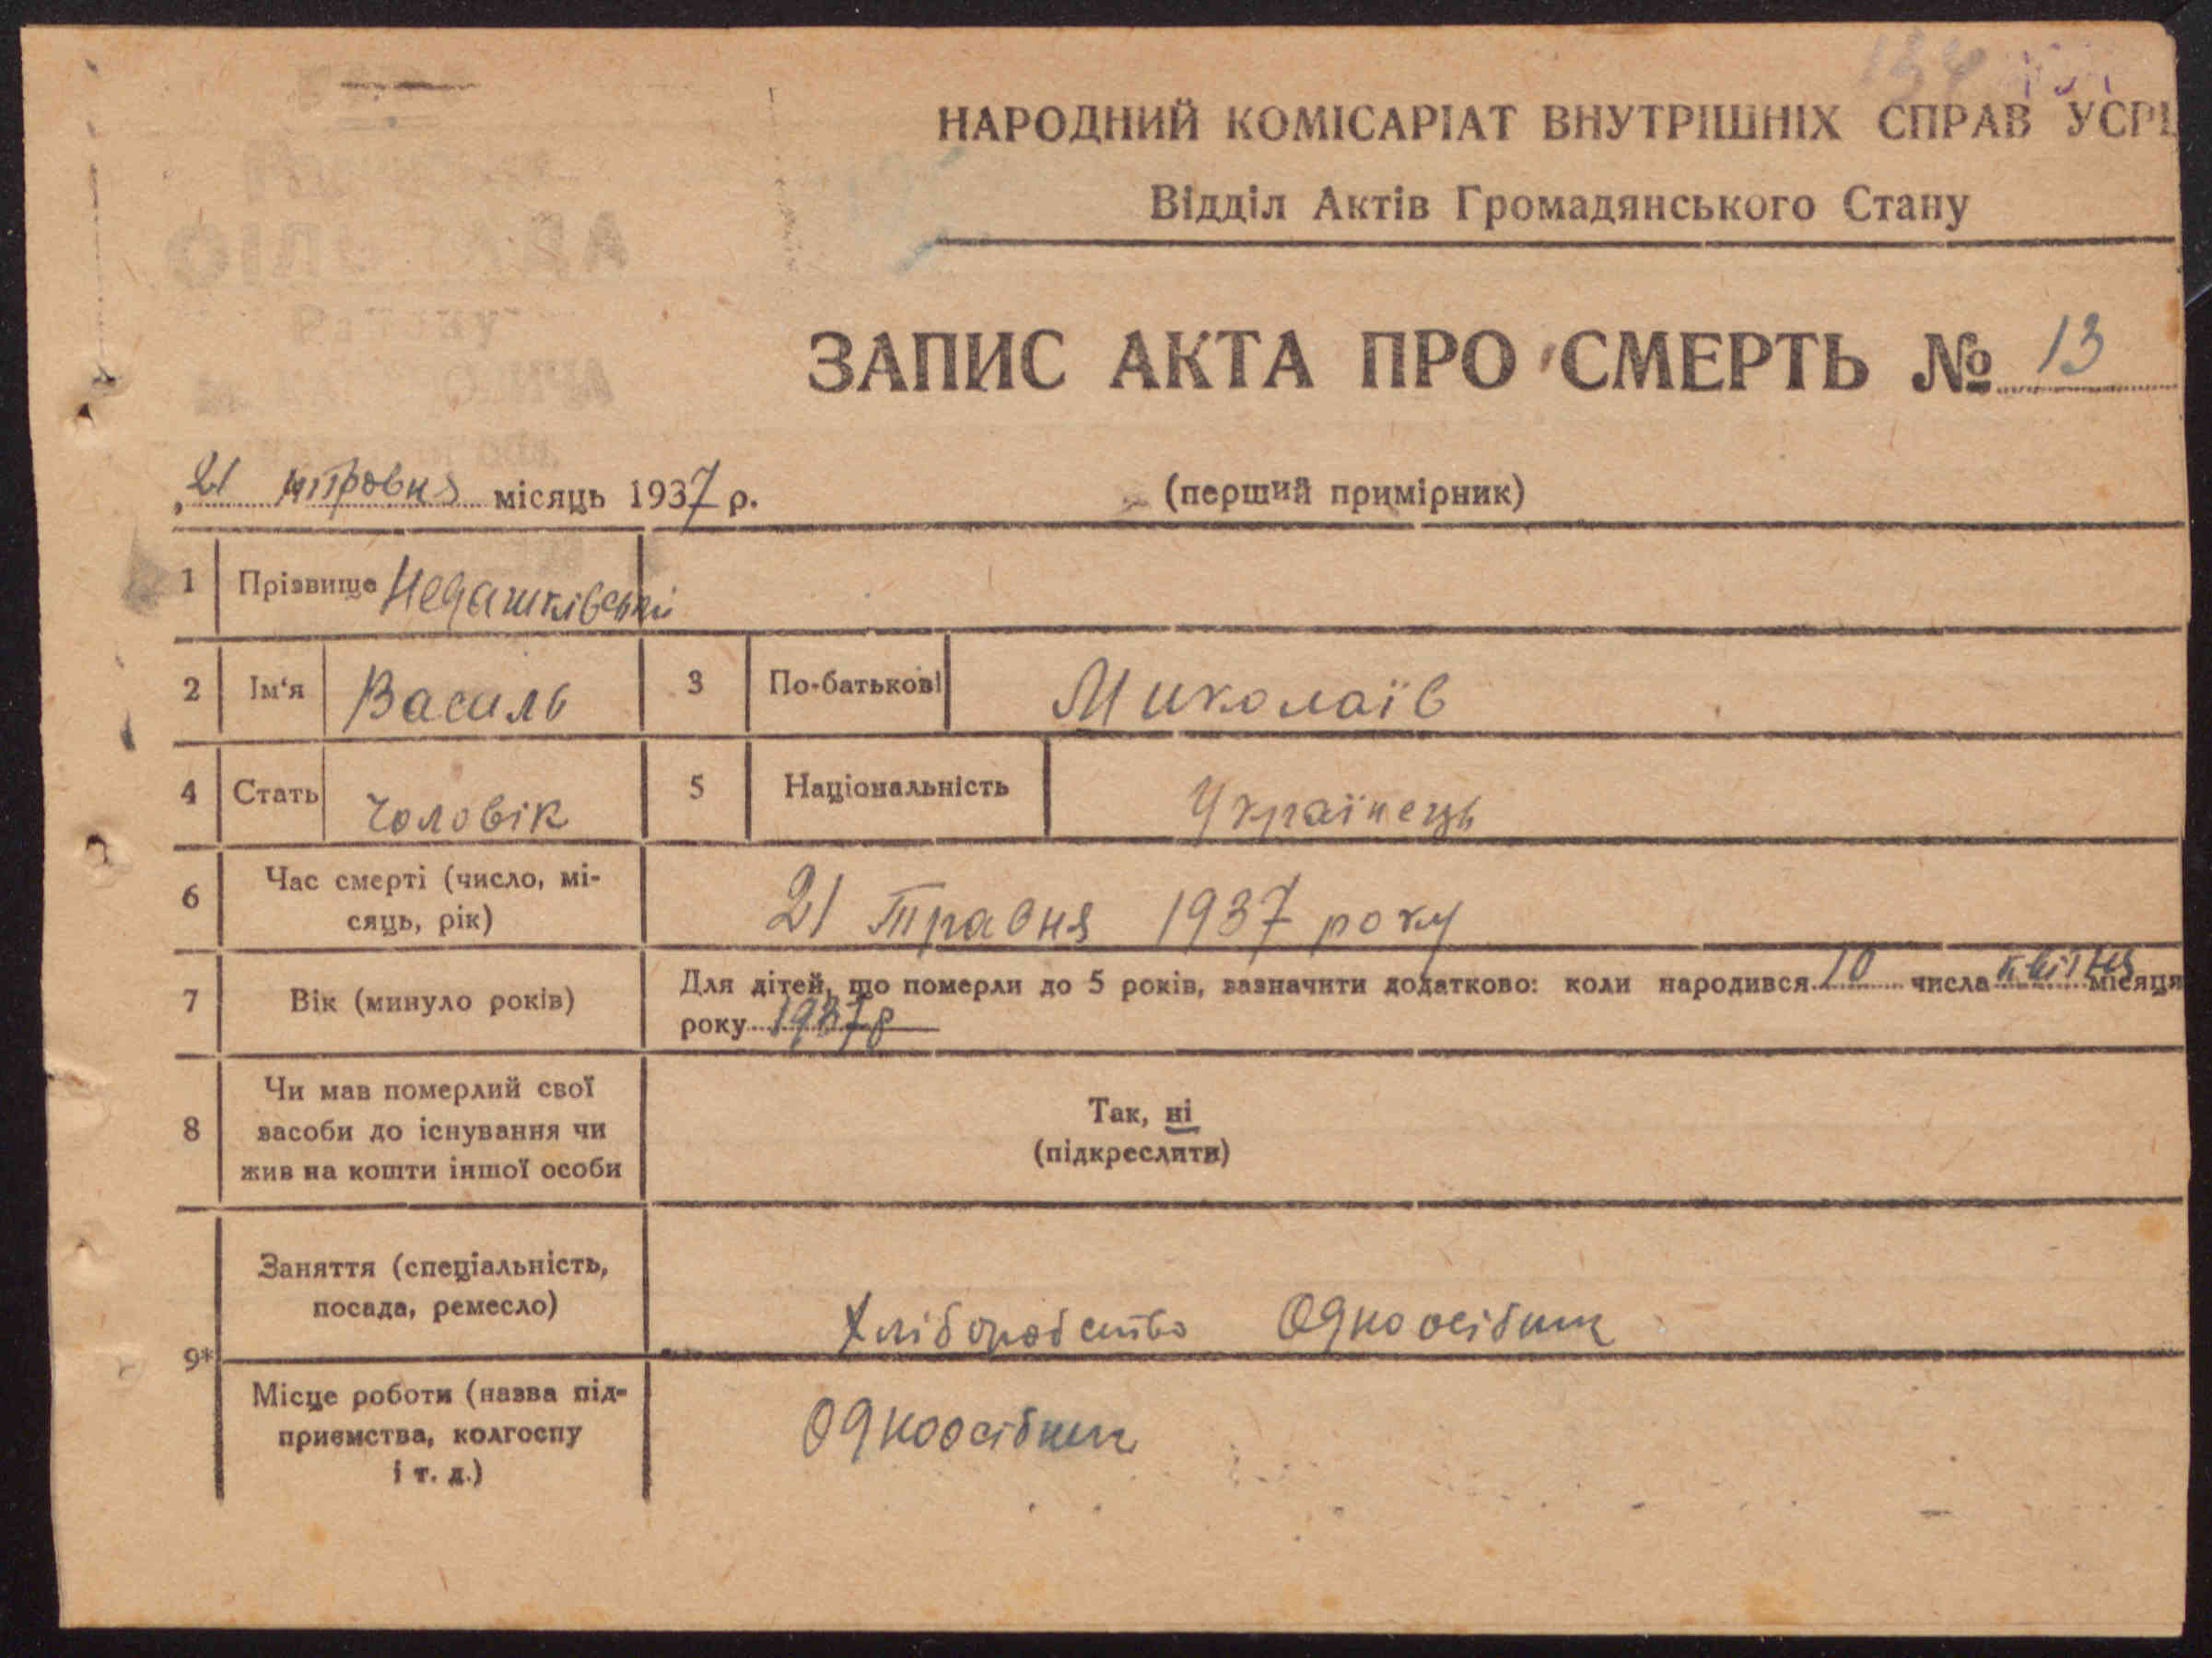 134
НАРОДНИЙ КОМІСАРІАТ ВНУТРІШНІХ СПРАВ УСРР
Відділ Актів Громадянського Стану
ЗАПИС АКТА ПРО СМЕРТЬ № 13
21 травня місяць 1937 р. (перший примірник)
1 Прізвище Недашківський
2 Ім‘я Василь 3 По-батькові Миколаїв
4 Стать Чоловік 5 Національність Українець
6 Час смерті (число, мі-
сяць, рік) 21 Травня 1937 року
7 Вік (минуло років) Для дітей, що померли до 5 років, зазначити додатково: коли народився 10 числа квітня місяця
року 1937 р
8 Чи мав померлий свої
засоби до існування чи
жив на кошти іншої особи
Так, ні
(підкреслити)
9*
Заняття (спеціальність,
посада, ремесло) Хліборобство Одноосібник
Місце роботи (назва під-
приємства, колгоспу
і т. д.) Одноосібник